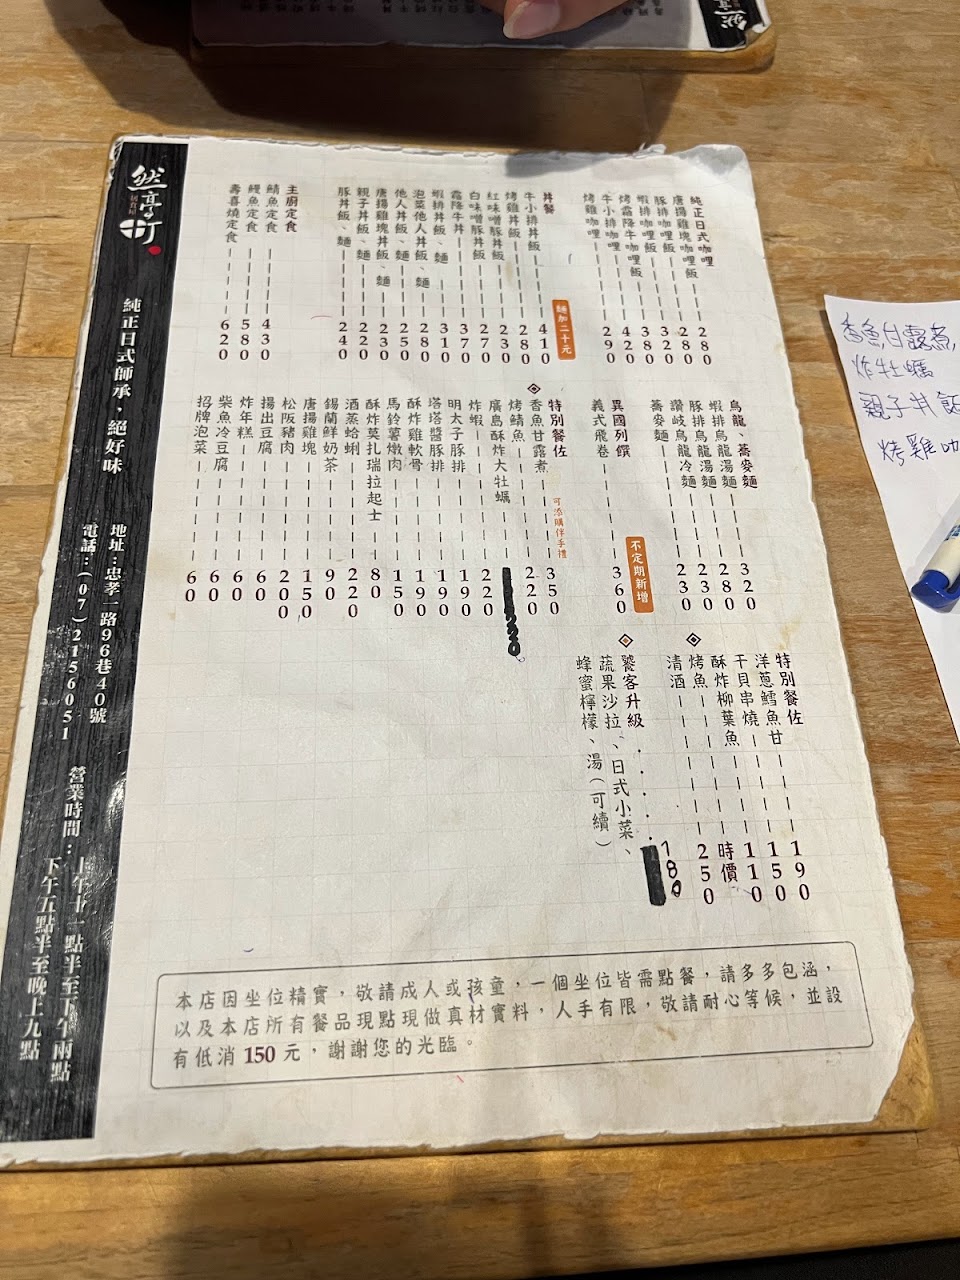 純正日式咖哩
唐揚雞塊咖哩飯 280
豚排咖哩飯 280
蝦排咖哩飯 320
烤霜降牛咖哩飯 380
牛小排咖哩飯 420
烤雞咖哩 290
丼餐
麵加二十元
牛小排丼飯 410
烤雞丼飯 280
紅味噌豚丼飯 230
白味噌豚丼飯 270
霜降牛丼 370
蝦排丼飯、麵 310
泡菜他人丼飯、麵 280
他人丼飯、麵 250
唐揚雞塊丼飯、麵 230
親子丼飯、麵 220
豚丼飯、麵 240
主廚定食
鯖魚定食 430
鰻魚定食 580
壽喜燒定食 620
烏龍、蕎麥麵
蝦排烏龍湯麵 320
豚排烏龍湯麵 280
讚岐烏龍冷麵 230
蕎麥麵 230
異國列饌
不定期新增
義式飛卷 360
特別餐佐
可添購伴手禮
香魚甘露煮 350
烤鯖魚 220
廣島酥炸大牡蠣 220
炸蝦 220
明太子豚排 190
塔塔醬豚排 190
酥炸雞軟骨 190
馬鈴薯燉肉 150
酥炸莫扎瑞拉起士 80
酒蒸蛤蜊 220
錫蘭鮮奶茶 90
唐揚雞塊 150
松阪豬肉 200
揚出豆腐 60
炸年糕 60
柴魚冷豆腐 60
招牌泡菜 60
特別餐佐
洋蔥鱈魚甘 190
干貝串燒 150
酥炸柳葉魚 110
烤魚 時價
清酒 250
饕客升級 180
蔬果沙拉、日式小菜、
蜂蜜檸檬、湯(可續)
本店因坐位精實，敬請成人或孩童，一個坐位皆需點餐，請多多包涵，
以及本店所有餐品現點現做真材實料，人手有限，敬請耐心等候，並設
有低消 150 元，謝謝您的光臨。
然亭町
居食屋
純正日式師承、絕好味
地址：忠孝一路96巷40號
電話：(07)2156051
營業時間：上午十一點半至下午兩點
下午五點半至晚上九點
香魚甘露煮,
炸牡蠣
親子丼飯
烤雞咖
然亭